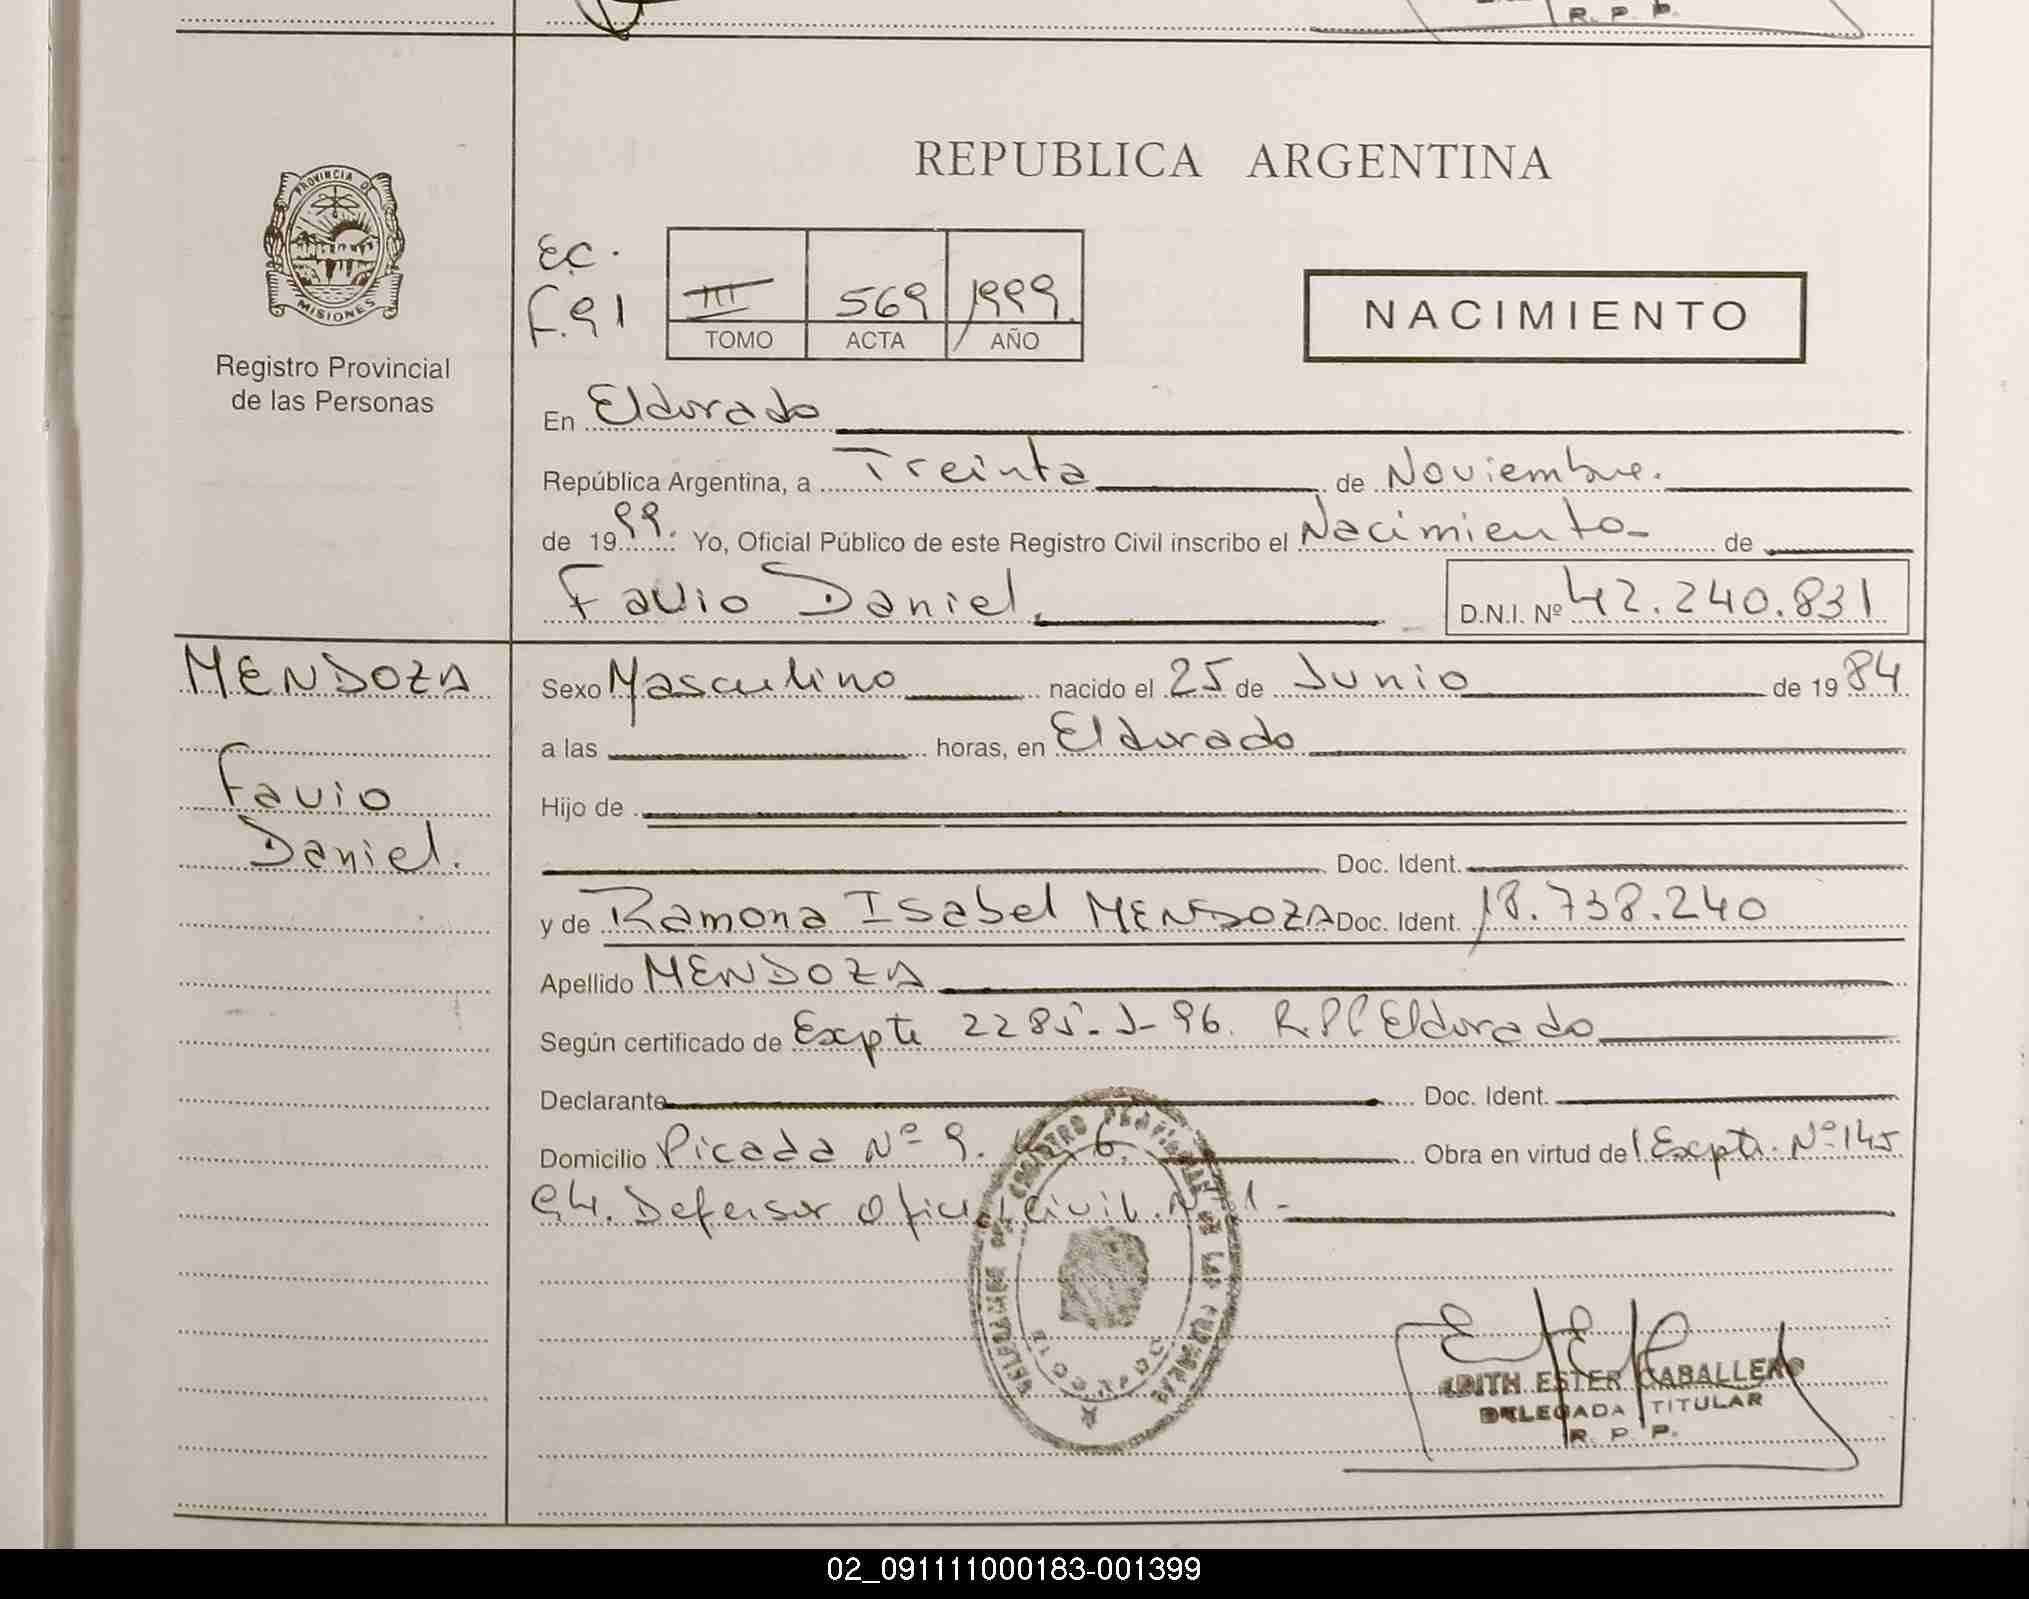 R. P. P.
REPUBLICA ARGENTINA
PROVINCIA DE
MISIONES
Registro Provincial
de las Personas
E.C.
F.91
III 569 1999
TOMO ACTA AÑO
NACIMIENTO
En Eldorado
República Argentina, a Treinta de Noviembre.
de 1999. Yo, Oficial Público de este Registro Civil inscribo el Nacimiento de
Favio Daniel. D.N.I. Nº 42.240.831
MENDOZA
Favio
Daniel.
Sexo Masculino nacido el 25 de Junio de 1984
a las horas, en Eldorado
Hijo de
Doc. Ident.
y de Ramona Isabel MENDOZA Doc. Ident. 18.738.240
Apellido MENDOZA
Según certificado de Expte 2285-J-96. R.P.P Eldorado
Declarante Doc. Ident.
Domicilio Picada Nº 9. 6. Obra en virtud del Expte. Nº 145
94. Defensor Oficial Civil Nº 1-
EDITH ESTER CABALLERO
DELEGADA TITULAR
R. P. P.
02_091111000183-001399